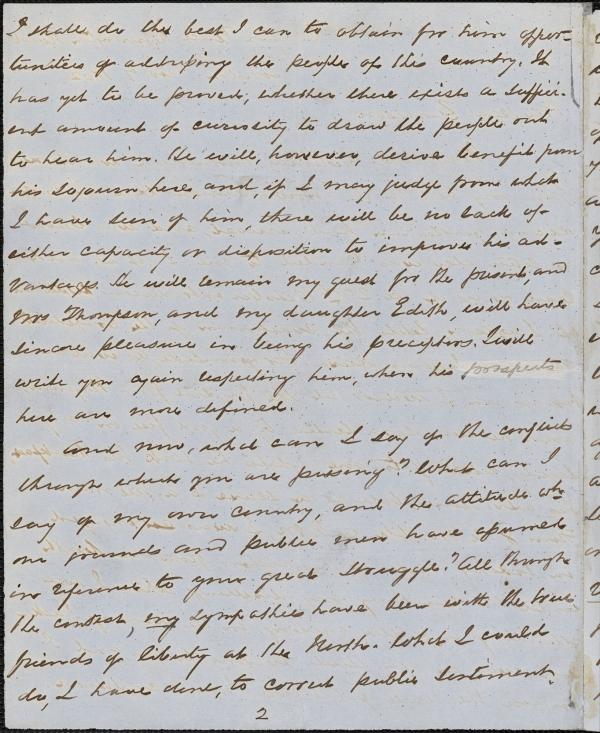 I shall do the best I can to obtain for him oppor-
tunities of addressing the people of this country. It
has yet to be proved, whether there exists a suffici-
ent amount of curiosity to draw the people out
to hear him. He will, however, derive benefit from
his sojourn here, and, if I may judge from what
I have seen of him, there will be no lack of
either capacity or disposition to improve his ad-
vantages. He will remain my guest for the present, and
Mrs Thompson, and my daughter Edith, will have
sincere pleasure in being his preceptors. I will
write you again respecting him, when his prospects
here are more defined.
And now, what can I say of the conflict
through which you are passing? What can I
say of my own country, and the attitude wh
our journals and public men have assumed
in reference to your great struggle? All through
the contest, my sympathies have been with the true
friends of liberty at the North. What I could
do, I have done, to correct public sentiment.
2